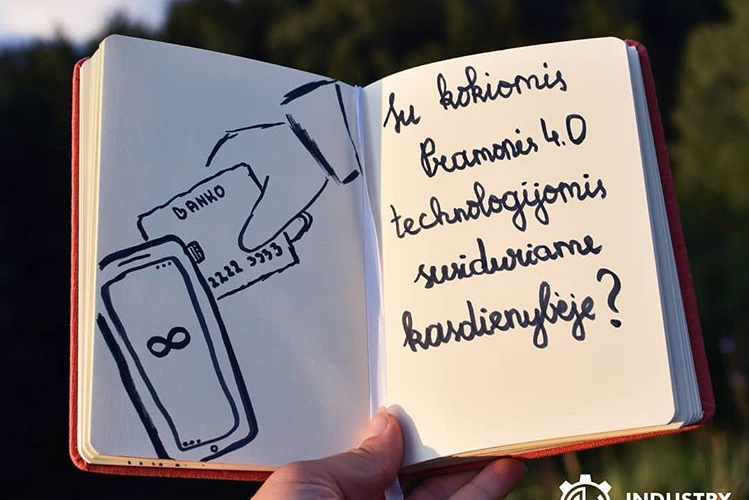 BANKO
2222 3333
Su kokiomis
Pramonės 4.0
technologijomis
susiduriame
kasdienybėje?
INDUSTRY